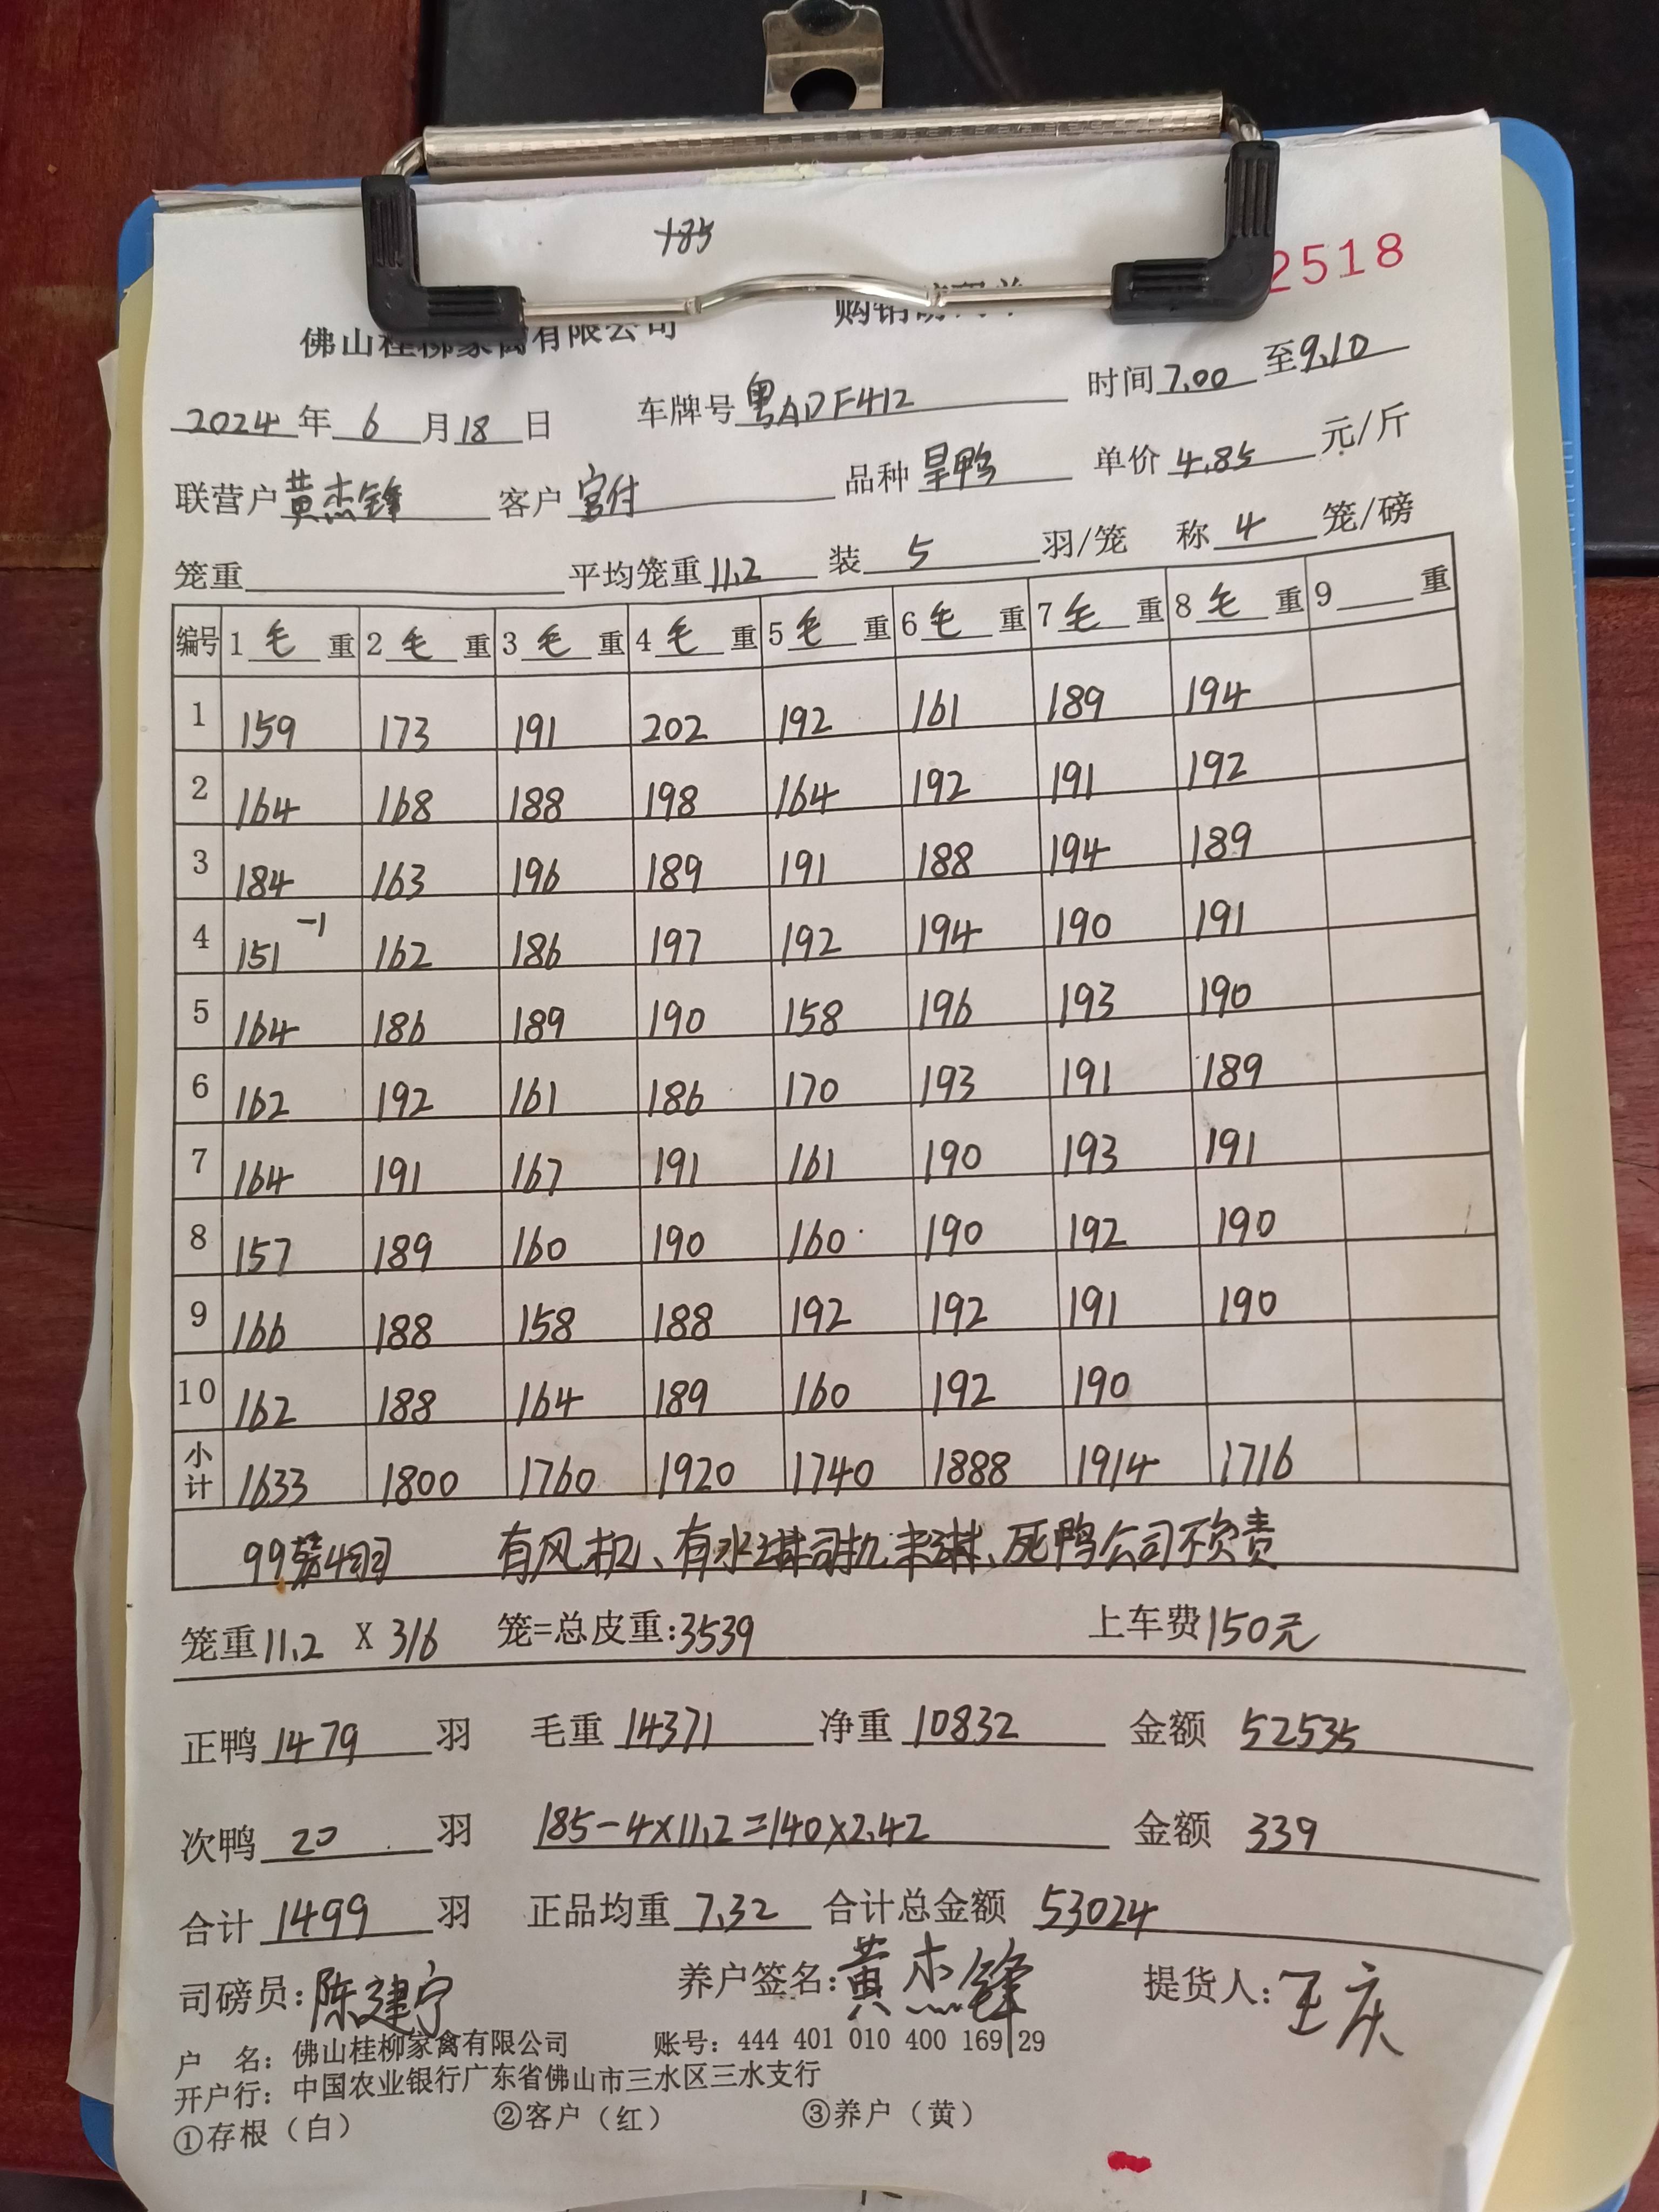 185
2518
佛山桂柳家禽有限公司 购销
2024年6月18日 车牌号粤ADF412 时间7.00至9.10
联营户黄杰锋 客户宫付 品种旱鸭 单价4.85元/斤
笼重 平均笼重11.2 装5羽/笼 称4笼/磅
编号 1毛重 2毛重 3毛重 4毛重 5毛重 6毛重 7毛重 8毛重 9重
1 159 173 191 202 192 161 189 194
2 164 168 188 198 164 192 191 192
3 184 163 196 189 191 188 194 189
4 151-1 162 186 197 192 194 190 191
5 164 186 189 190 158 196 193 190
6 162 192 161 186 170 193 191 189
7 164 191 167 191 161 190 193 191
8 157 189 160 190 160 190 192 190
9 166 188 158 188 192 192 191 190
10 162 188 164 189 160 192 190
小计 1633 1800 1760 1920 1740 1888 1914 1716
99装4羽 有风机、有水淋司机未淋、死鸭公司不负责
笼重11.2 X 316 笼=总皮重:3539 上车费150元
正鸭1479羽 毛重14371 净重10832 金额52535
次鸭20羽 185-4×11.2=140×2.42 金额339
合计1499羽 正品均重7.32 合计总金额53024
司磅员:陈建宁 养户签名:黄杰锋 提货人:王庆
户 名: 佛山桂柳家禽有限公司 账号: 444 401 010 400 169 29
开户行: 中国农业银行广东省佛山市三水区三水支行
①存根（白） ②客户（红） ③养户（黄）